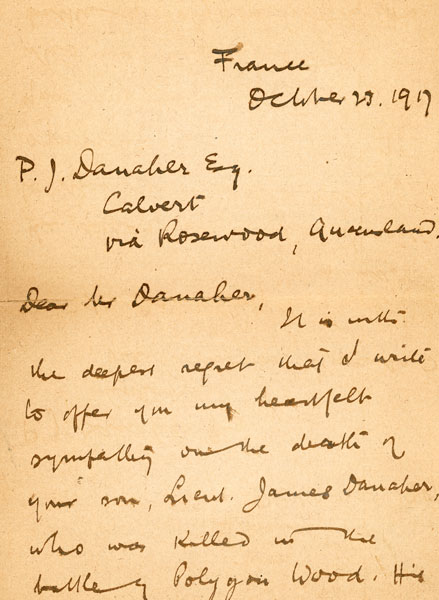 France
October 23. 1917
P. J. Danaher Esq.
Calvert
via Rosewood, Queensland.
Dear Mr Danaher,
It is with
the deepest regret that I write
to offer you my heartfelt
sympathy on the death of
your son, Lieut. James Danaher,
who was killed in the
battle of Polygon Wood. His